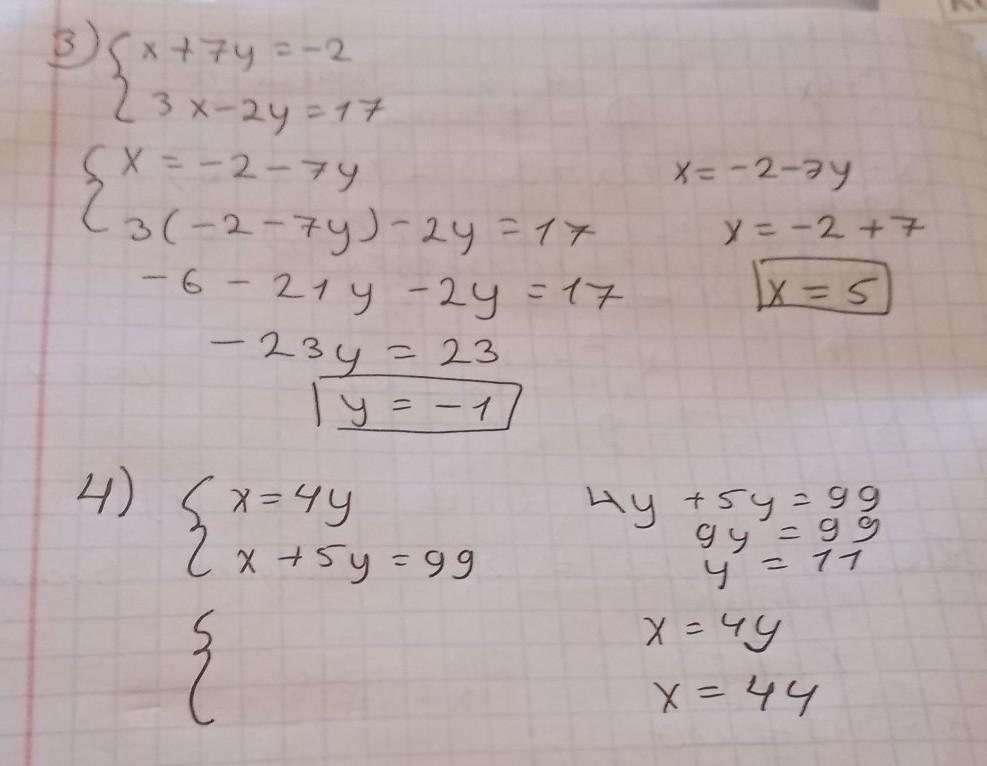 3) { x + 7y = -2
3x - 2y = 17
{ x = -2 - 7y
3(-2 - 7y) - 2y = 17
-6 - 21y - 2y = 17
-23y = 23
y = -1
x = -2 - 7y
x = -2 + 7
x = 5
4) { x = 4y
x + 5y = 99
{
4y + 5y = 99
9y = 99
y = 11
x = 4y
x = 44